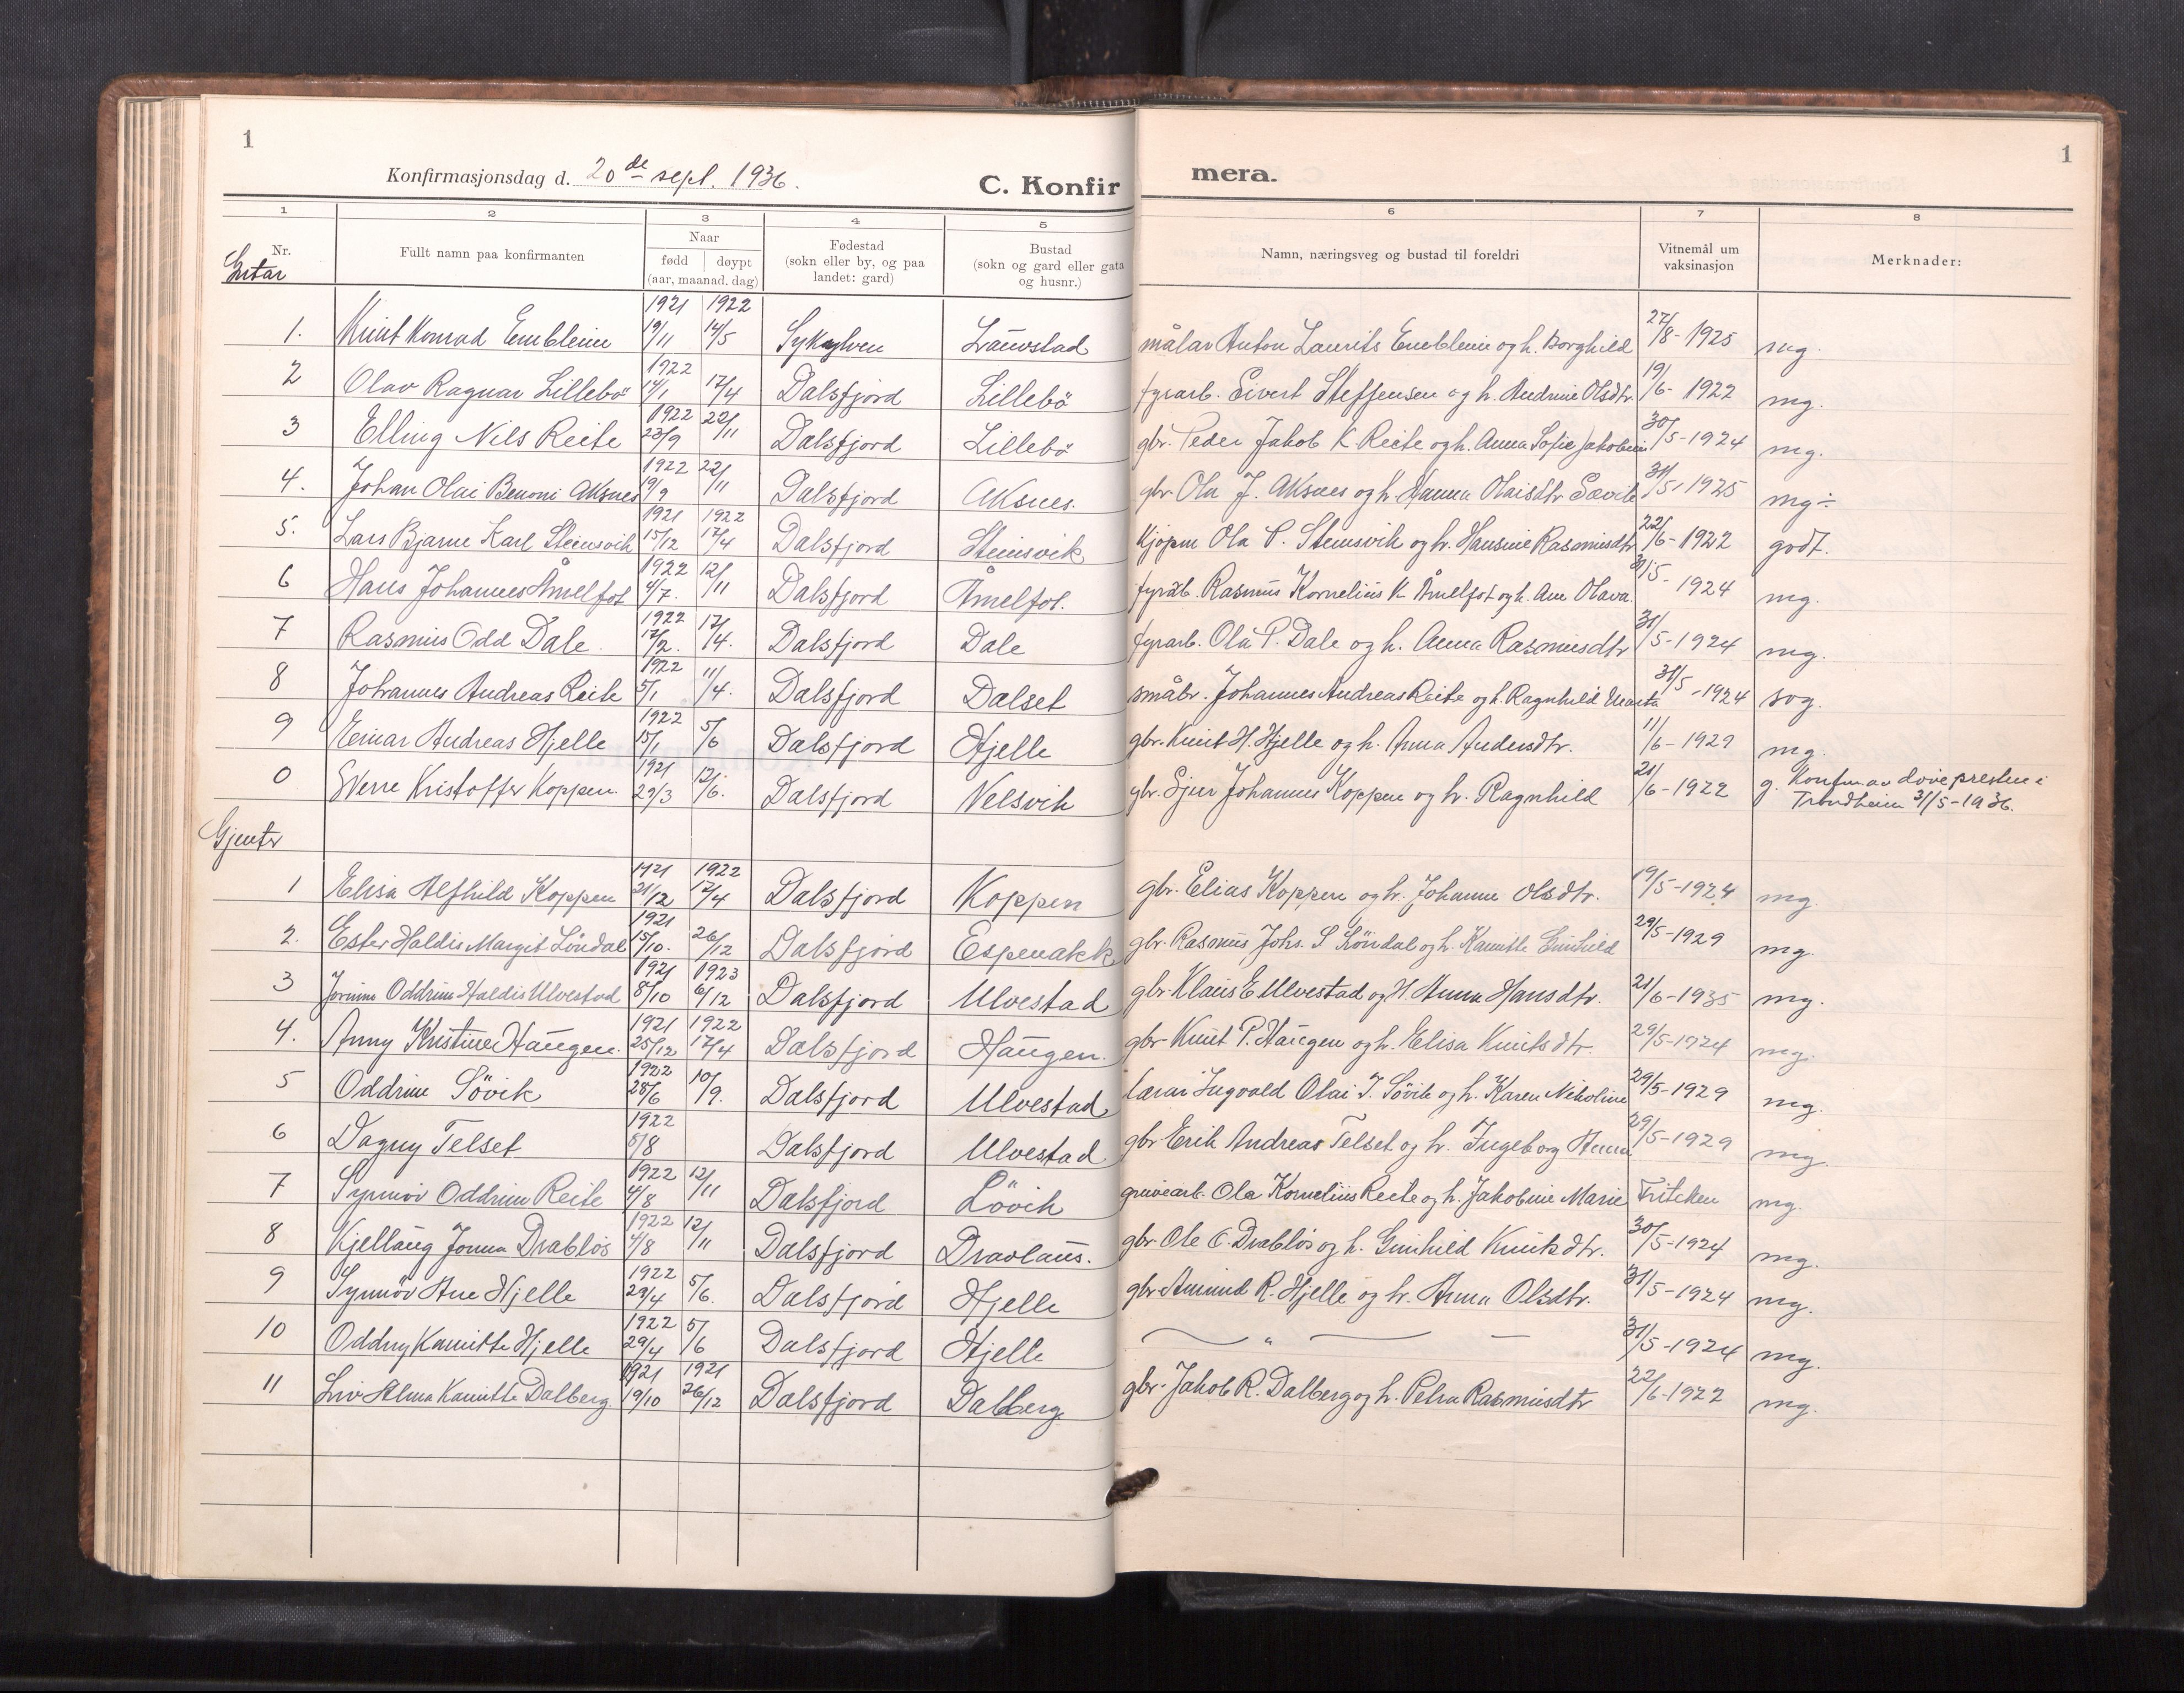 1
1
Konfirmasjonsdag d. 20de sept. 1936.
C. Konfir
mera.
1 2 3 4 5 6 7 8
Nr.
Fullt namn paa konfirmanten
Naar
fødd døypt
(aar, maanad, dag)
Fødestad
(sokn eller by, og paa
landet: gard)
Bustad
(sokn og gard eller gata
og husnr.)
Namn, næringsveg og bustad til foreldri
Vitnemål um
vaksinasjon
Merknader:
Gutar
1921 1922
1. Knut Konrad Emblem 19/11 14/5 Sykkylven Lauvstad målar Anton Laurits Emblem og h. Borghild 27/8-1925 mg.
1922
2 Olav Ragnar Lillebö 14/1 17/4 Dalsfjord Lillebö fyrarb. Sivert Steffensen og h. Andrine Olsdtr. 19/6-1922 mg.
1922
3 Elling Nils Reite 23/9 22/11 Dalsfjord Lillebö gbr. Peder Jakob K Reite og h. Anna Sofie Jakobine 30/5-1924 mg.
1922
4. Johan Olai Benoni Aksnes 19/9 22/11 Dalsfjord Aksnes. gbr. Ola J. Aksnes og h. Hanna Olaisdtr Sævik 31/5-1925 mg÷
1921 1922
5. Lars Bjarne Karl Steinsvik 15/12 17/4 Dalsfjord Steinsvik kjøpm Ola P. Steinsvik og h. Hansine Rasmusdtr 22/6-1922 godt.
1922
6 Hans Johannes Åmelfot 4/7. 12/11 Dalsfjord Åmelfot. fyrarb. Rasmus Kornelius K. Åmelfot og h. Ane Olava. 31/5-1924 mg.
1922
7 Rasmus Odd Dale 17/2. 17/4. Dalsfjord Dale fyrarb. Ola P. Dale og h. Anna Rasmusdtr 31/5-1924 mg.
1922
8 Johannes Andreas Reite 5/1 11/4. Dalsfjord Dalset småbr. Johannes Andreas Reite og h. Ragnhild Marta 31/5-1924 sog.
1922
9 Einar Andreas Hjelle 15/1 5/6 Dalsfjord Hjelle gbr. Knut H. Hjelle og h. Anna Andersdtr. 11/6-1929 mg.
1921
0 Sverre Kristoffer Koppen. 29/3 12/6. Dalsfjord Velsvik gbr. Sjur Johannes Koppen og h. Ragnhild 21/6-1922 g. Konfm av døvepresten i
Trondheim 31/5-1936.
Gjentr
1921 1922
1 Elisa Alfhild Koppen 21/12 17/4 Dalsfjord Koppen gbr. Elias Koppen og h. Johanne Olsdtr. 19/5-1924 mg.
1921
2. Ester Haldis Margit Löndal 15/10. 26/12 Dalsfjord Espenakk gbr. Rasmus Johs. S Löndal og h. Kamilla Gunhild 29/5-1929 mg.
1921 1923
3 Jorunn Oddrun Haldis Ulvestad 8/10 6/12 Dalsfjord Ulvestad gbr. Klaus E Ulvestad og H. Anna Hansdtr. 21/6-1935 mg.
1921 1922
4. Anny Kristine Haugen. 25/12 17/4 Dalsfjord Haugen. gbr. Knut P. Haugen og h. Elisa Knutsdtr. 29/5-1924 mg.
1922
5 Oddrun Sövik 28/6 10/9. Dalsfjord Ulvestad lærar Ingvald Olai J. Sövik og h. Karen Nikoline 29/5-1929 mg.
1922
6 Dagny Telset 5/8 Dalsfjord Ulvestad gbr Erik Andreas Telset og h. Ingeborg Anna 29/5-1929 mg.
1922
7 Synnöv Oddrun Reite 4/8 12/11 Dalsfjord Lövik gruvearb. Ola Kornelius Reite og h. Jakobine Marie mg.
1922
8 Kjellaug Jonna Drablös 4/8 12/11 Dalsfjord Dravlaus. gbr. Ole E. Drablös og h. Gunhild Knutsdtr. 30/5-1924 mg.
1922
9 Synnöv Ane Hjelle 29/4 5/6. Dalsfjord Hjelle gbr. Amund R. Hjelle og h. Anna Olsdtr. 31/5-1924 mg.
1922
10 Oddny Kamilla Hjelle 29/4 5/6 Dalsfjord Hjelle — " — — 31/5-1924 mg.
1921 1921
11 Liv Alma Kamilla Dalberg. 19/10 26/12 Dalsfjord Dalberg gbr. Jakob R. Dalberg og h. Petra Rasmusdtr 22/6-1922 mg.